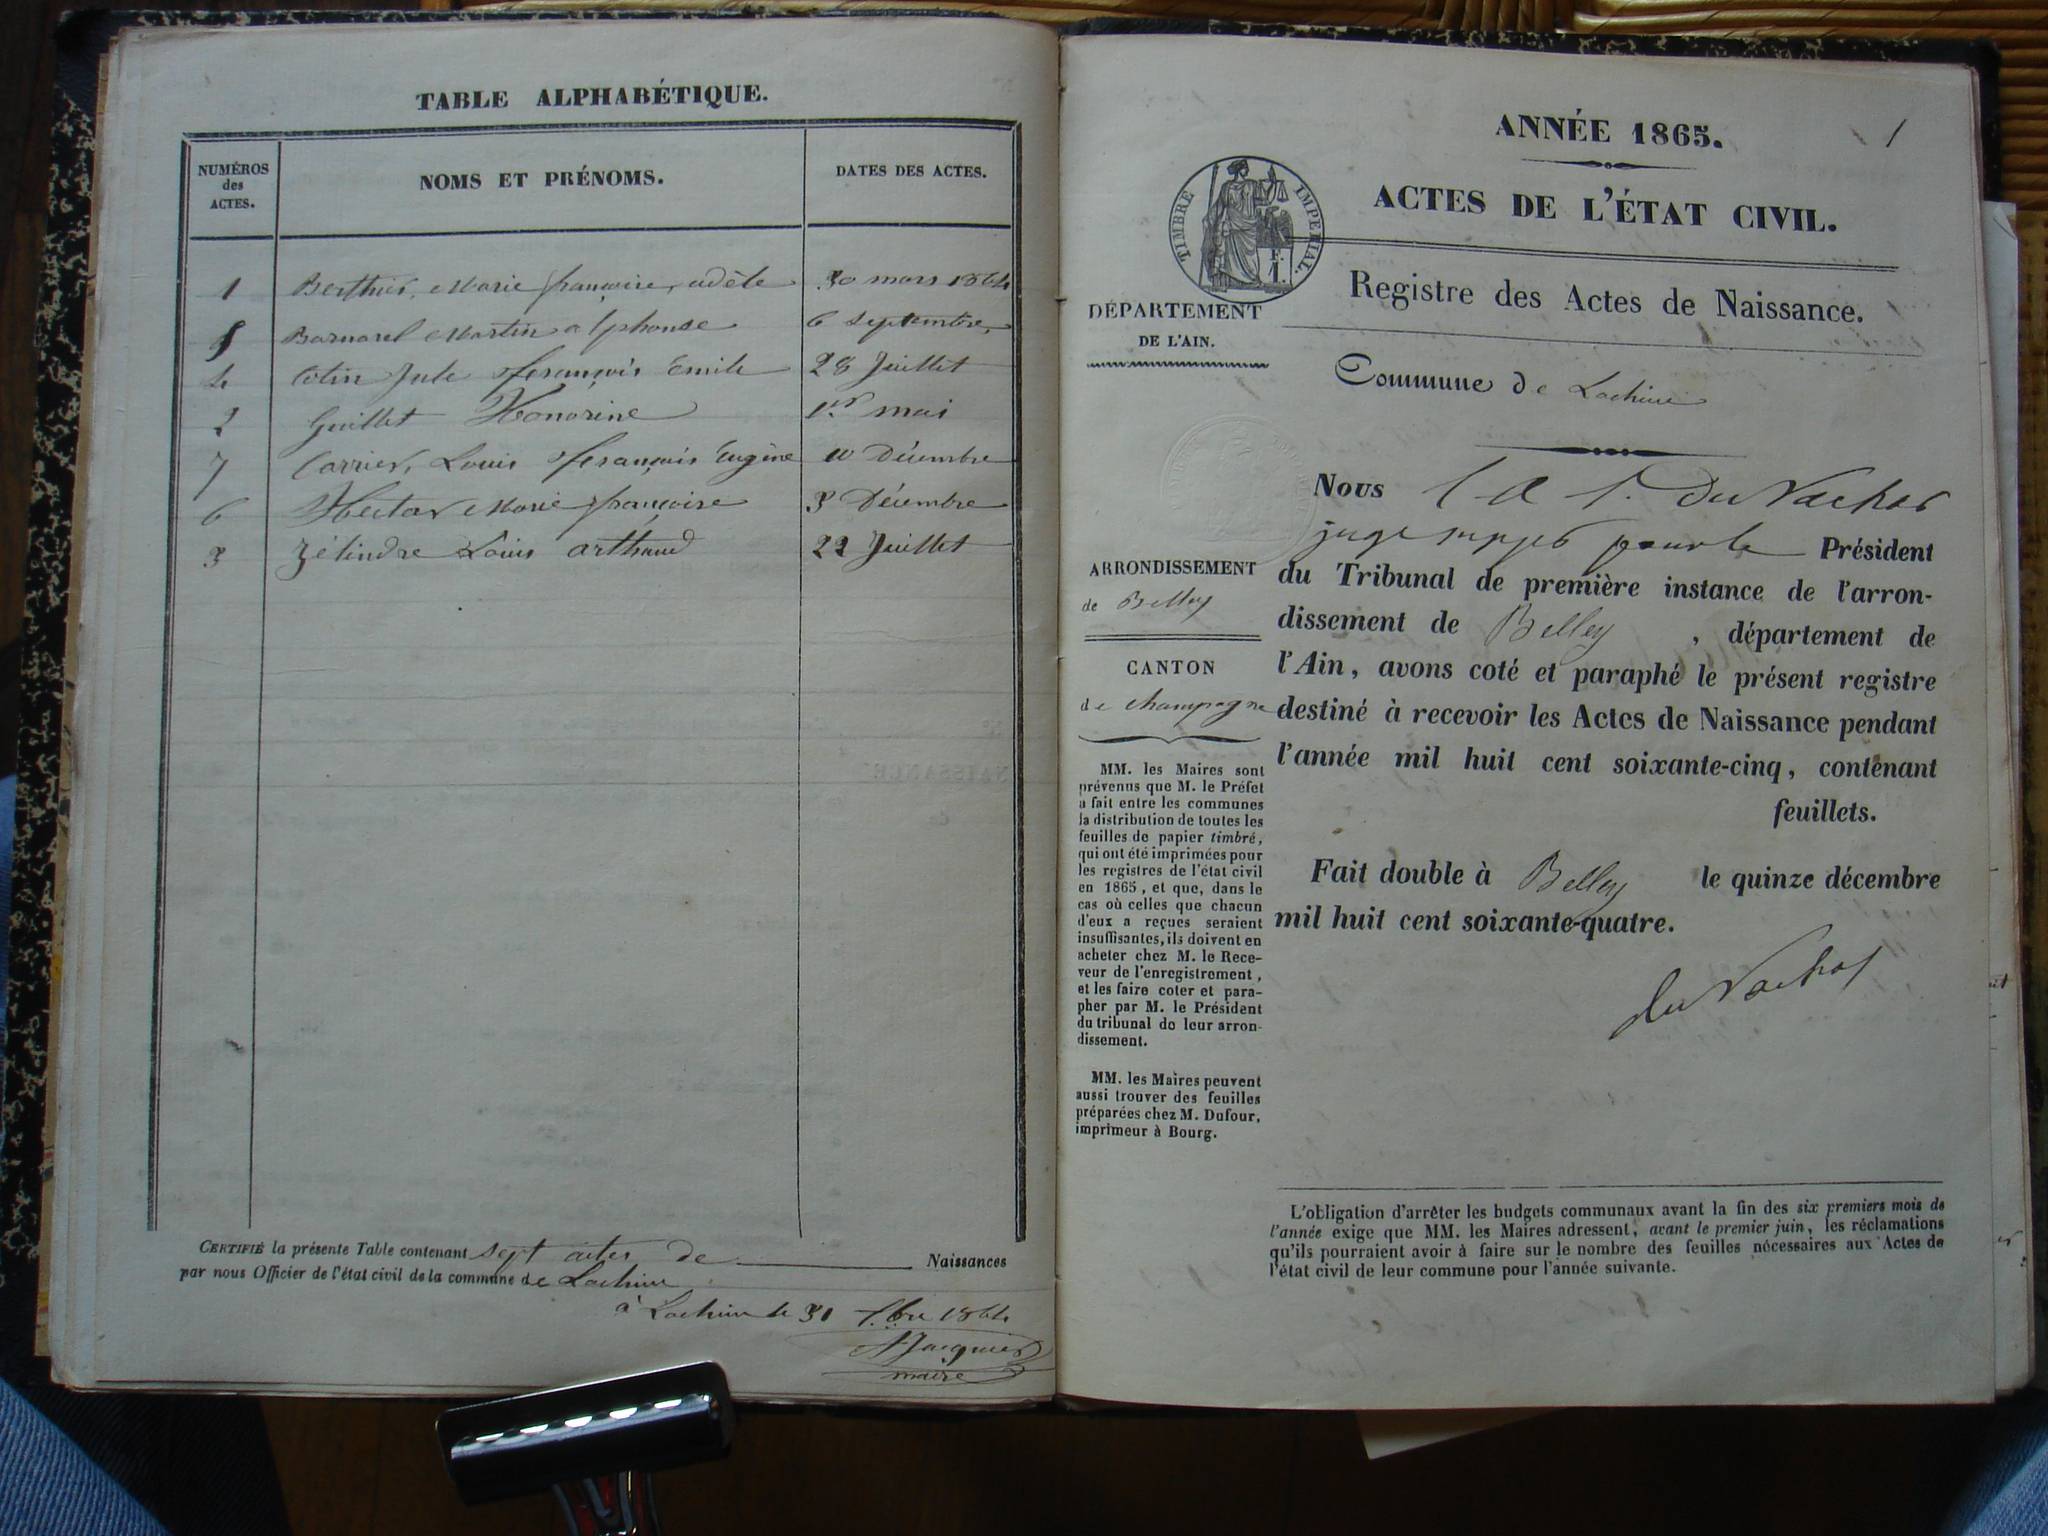 TABLE ALPHABÉTIQUE.
NUMÉROS des ACTES.
NOMS ET PRÉNOMS.
DATES DES ACTES.
1 Berthier, Marie françoise, adèle 30 mars 1864
5 Barnarel Martin alphonse 6 Septembre
4 Cotin Jule françois Emile 28 Juillet
2 Guillet Honorine 1er mai
7 Carrier, Louis françois Eugène 10 Décembre
6 Hectar Marie françoise 3 Décembre
3 Zélindre Louis arthaud 22 Juillet
CERTIFIÉ la présente Table contenant sept actes de Naissances
par nous Officier de l'état civil de la commune de Lochieu
à Lochieu le 31 Xbre 1864
Jacquier
maire
1
ANNÉE 1865.
ACTES DE L'ÉTAT CIVIL.
TIMBRE IMPERIAL.
Registre des Actes de Naissance.
DÉPARTEMENT
DE L'AIN.
Commune de Lochieu
Nous du Vachat
juge suppt pour le Président
du Tribunal de première instance de l'arron-
dissement de Belley, département de
l'Ain, avons coté et paraphé le présent registre
destiné à recevoir les Actes de Naissance pendant
l'année mil huit cent soixante-cinq, contenant
feuillets.
Fait double à Belley le quinze décembre
mil huit cent soixante-quatre.
du Vachat
ARRONDISSEMENT
de Belley
CANTON
de Champagne
MM. les Maires sont
prévenus que M. le Préfet
a fait entre les communes
la distribution de toutes les
feuilles de papier timbré,
qui ont été imprimées pour
les registres de l'état civil
en 1865, et que, dans le
cas où celles que chacun
d'eux a reçues seraient
insuffisantes, ils doivent en
acheter chez M. le Rece-
veur de l'enregistrement,
et les faire coter et para-
pher par M. le Président
du tribunal de leur arron-
dissement.
MM. les Maires peuvent
aussi trouver des feuilles
préparées chez M. Dufour,
imprimeur à Bourg.
L'obligation d'arrêter les budgets communaux avant la fin des six premiers mois de
l'année exige que MM. les Maires adressent, avant le premier juin, les réclamations
qu'ils pourraient avoir à faire sur le nombre des feuilles nécessaires aux Actes de
l'état civil de leur commune pour l'année suivante.